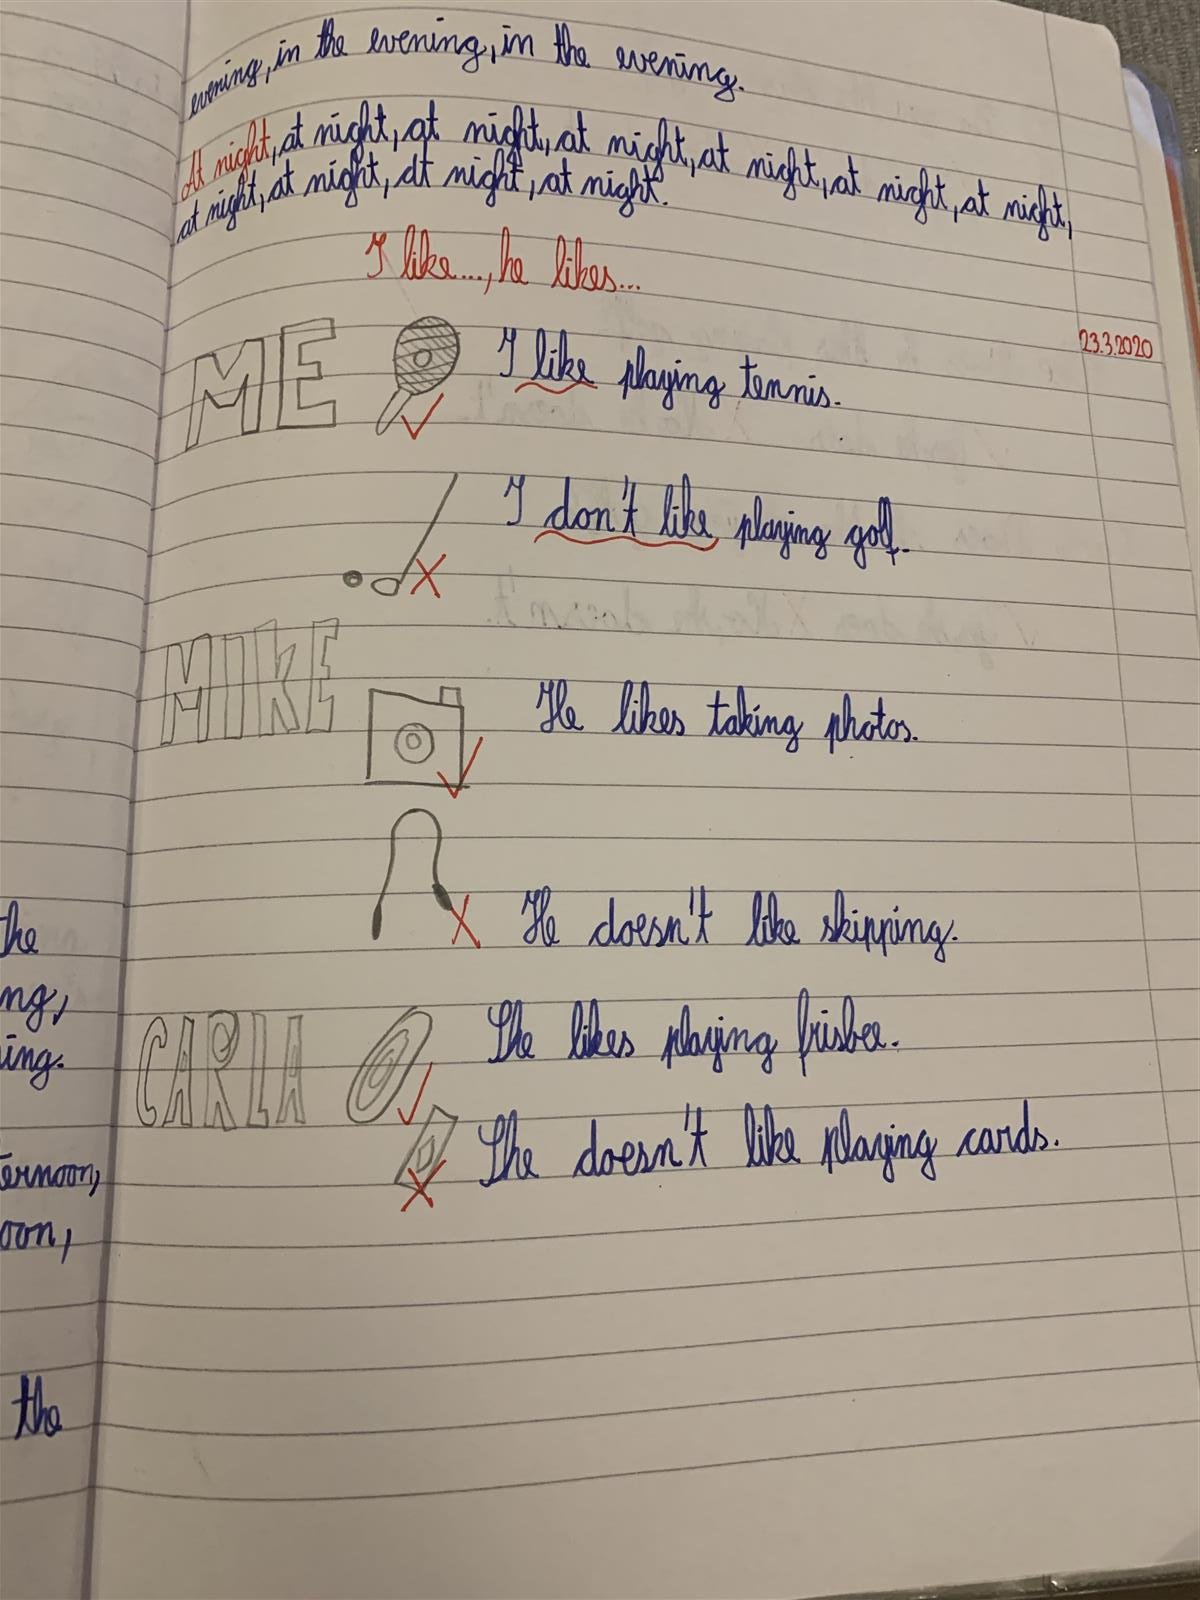 evening, in the evening, in the evening.
At night, at night, at night, at night, at night, at night, at night,
at night, at night, at night, at night.
I like..., he likes...
23.3.2020
ME I like playing tennis.
I don't like playing golf.
MIKE He likes taking photos.
He doesn't like skipping.
CARLA She likes playing frisbee.
She doesn't like playing cards.
the
ng,
ing.
ernoon,
oon,
the